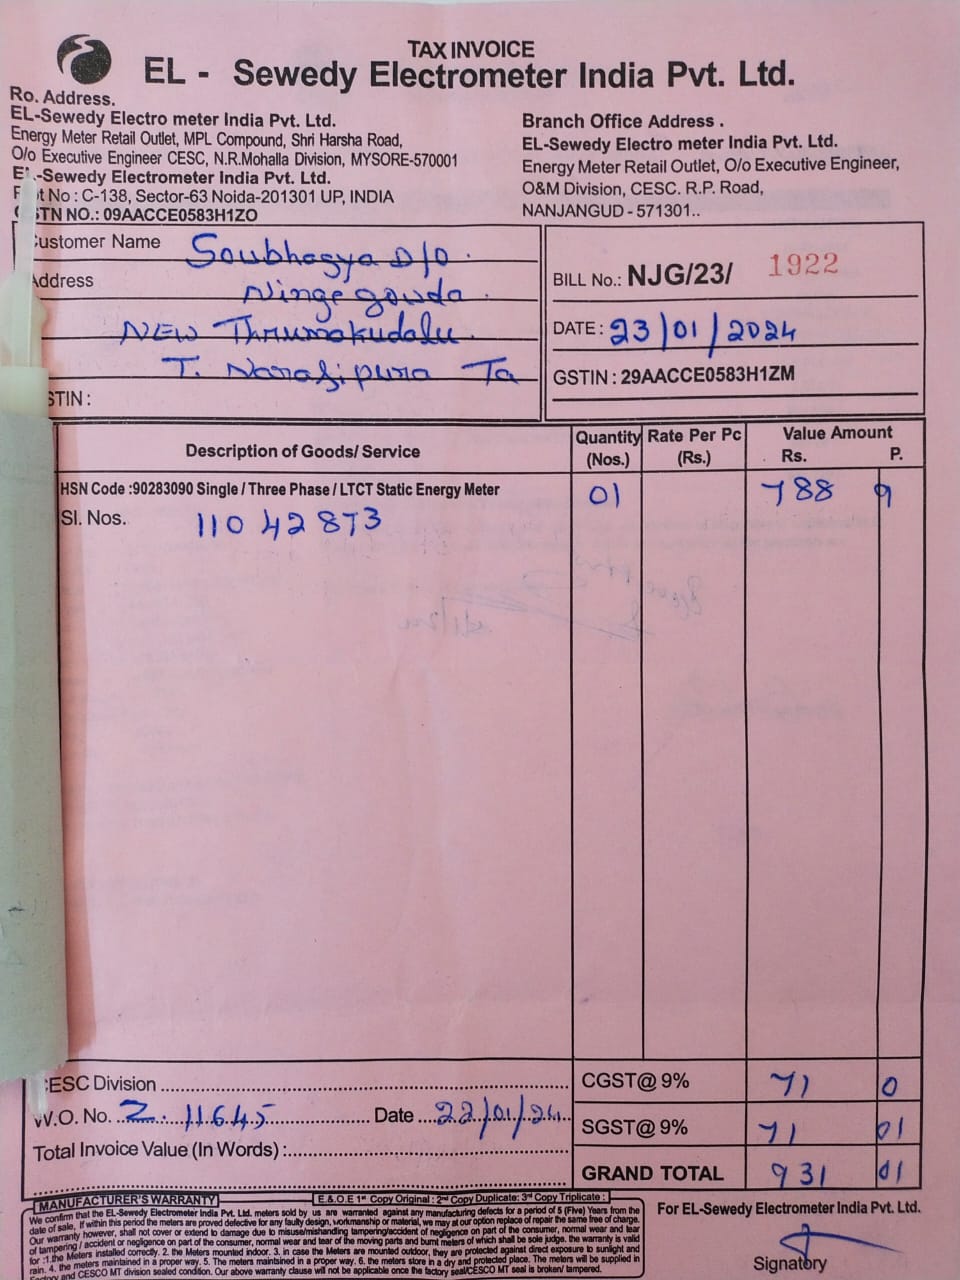 TAX INVOICE
EL - Sewedy Electrometer India Pvt. Ltd.
Ro. Address.
EL-Sewedy Electro meter India Pvt. Ltd.
Energy Meter Retail Outlet, MPL Compound, Shri Harsha Road,
O/o Executive Engineer CESC, N.R.Mohalla Division, MYSORE-570001
EL-Sewedy Electrometer India Pvt. Ltd.
Plot No : C-138, Sector-63 Noida-201301 UP, INDIA
GSTN NO.: 09AACCE0583H1ZO
Branch Office Address .
EL-Sewedy Electro meter India Pvt. Ltd.
Energy Meter Retail Outlet, O/o Executive Engineer,
O&M Division, CESC. R.P. Road,
NANJANGUD - 571301..
Customer Name Soubhagya D/O
Address Ningegowda
New Thirumakudalu
T. Narasipura Ta
GSTIN :
BILL No.: NJG/23/ 1922
DATE : 23/01/2024
GSTIN : 29AACCE0583H1ZM
Description of Goods/ Service Quantity (Nos.) Rate Per Pc (Rs.) Value Amount Rs. P.
HSN Code :90283090 Single / Three Phase / LTCT Static Energy Meter 01 788 9
Sl. Nos. 11042873
CESC Division
CGST@ 9% 71 0
W.O. No. 2.11645 Date 22/01/24
SGST@ 9% 71 01
Total Invoice Value (In Words) :
GRAND TOTAL 931 01
E.& O.E 1st Copy Original : 2nd Copy Duplicate: 3rd Copy Triplicate :
MANUFACTURER'S WARRANTY
We confirm that the EL-Sewedy Electrometer India Pvt. Ltd. meters sold by us are warranted against any manufacturing defects for a period of 5 (Five) Years from the
date of sale, If within this period the meters are proved defective for any faulty design, workmanship or material, we may at our option replace of repair the same free of charge.
Our warranty however, shall not cover or extend to damage due to misuse/mishandling tampering/accident or negligence on part of the consumer, normal wear and tear
of tampering / accident or negligence on part of the consumer, normal wear and tear of the moving parts and burnt meters of which shall be sole judge. the warranty is valid
for :1.the Meters installed correctly. 2. the Meters mounted indoor. 3. in case the Meters are mounted outdoor, they are protected against direct exposure to sunlight and
rain. 4. the meters maintained in a proper way. 5. The meters maintained in a proper way. 6. the meters store in a dry and protected place. The meters will be supplied in
Factory and CESCO MT division sealed condition. Our above warranty clause will not be applicable once the factory seal/CESCO MT seal is broken/ tampered.
For EL-Sewedy Electrometer India Pvt. Ltd.
Signatory